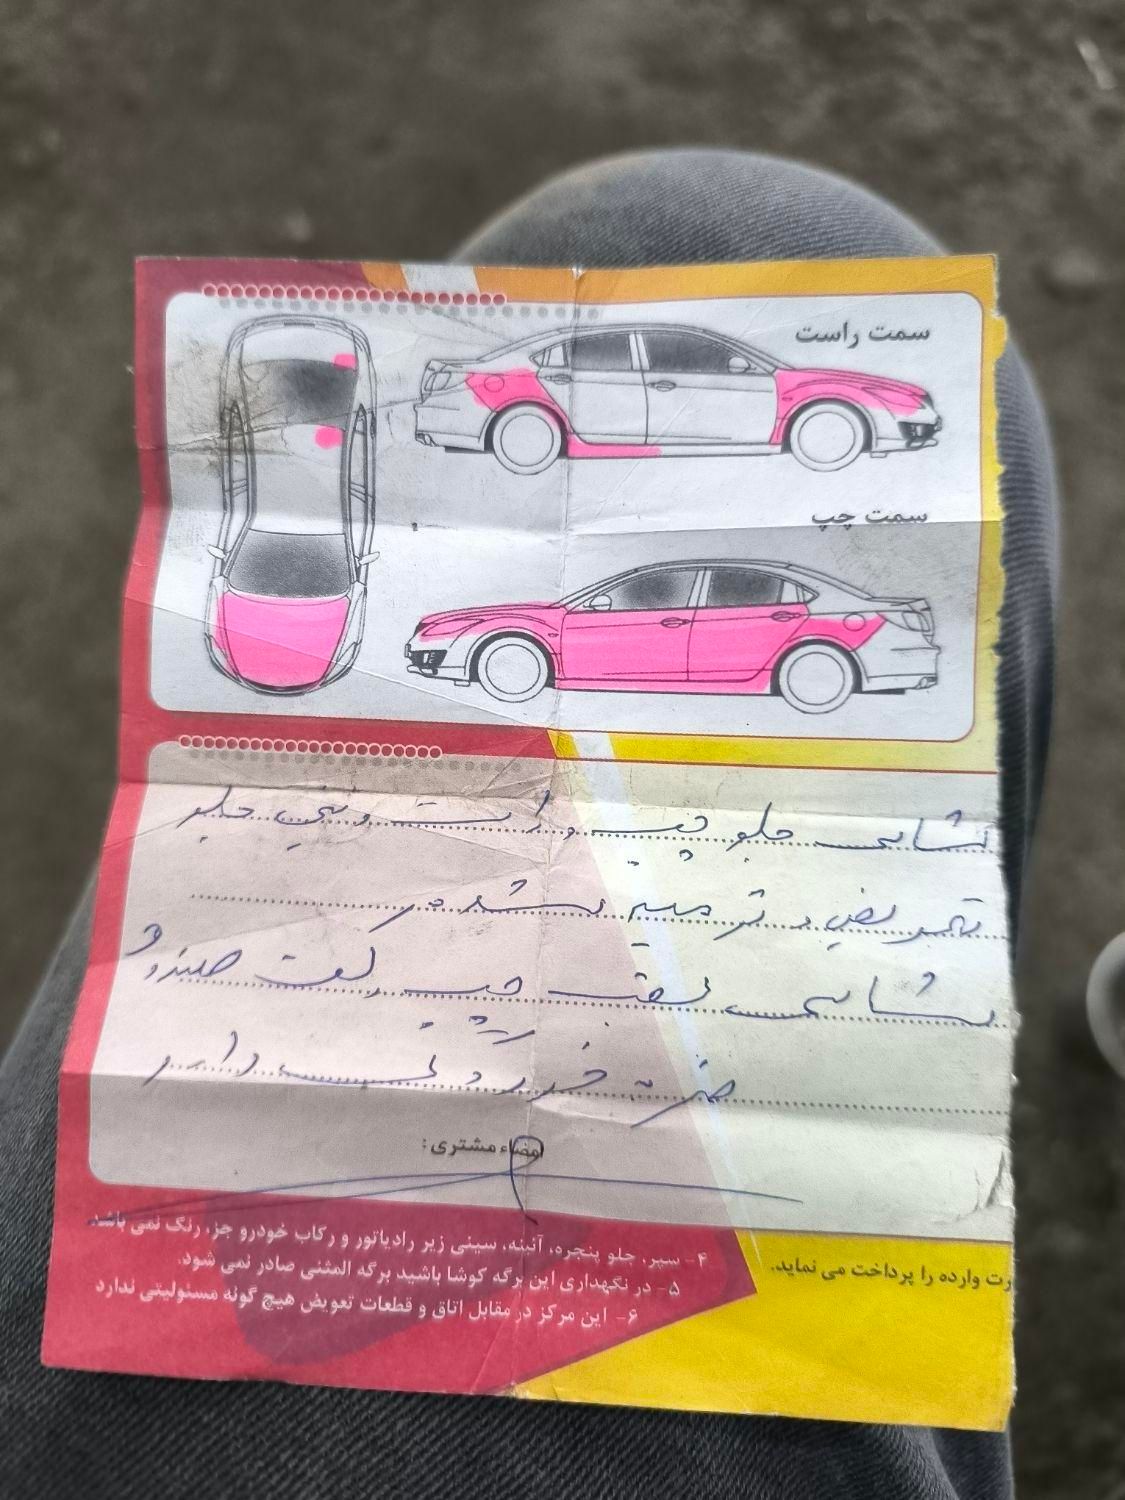 سمت راست
سمت چپ
شاسی جلو چپ و راست و سینی جلو
تعویض و ترمیم شده
شاسی عقب چپ و کف صندوق
ضربه خورده
امضاء مشتری:
۴- سپر، جلو پنجره، آئینه، سینی زیر رادیاتور و رکاب خودرو جز، رنگ نمی باشد
۵- در نگهداری این برگه کوشا باشید برگه المثنی صادر نمی شود.
۶- این مرکز در مقابل اتاق و قطعات تعویض هیچ گونه مسئولیتی ندارد
وارده را پرداخت می نماید.